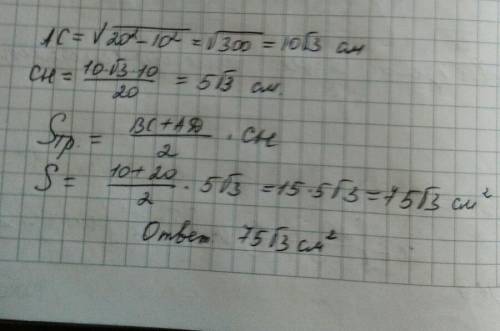 AC = √20² - 10² = √300 = 10√3 см
CH = 10·√3·10 / 20 = 5√3 см.
Sтр. = BC + AD / 2 · CH
S = 10 + 20 / 2 · 5√3 = 15·5√3 = 75√3 см²
Ответ 75√3 см²